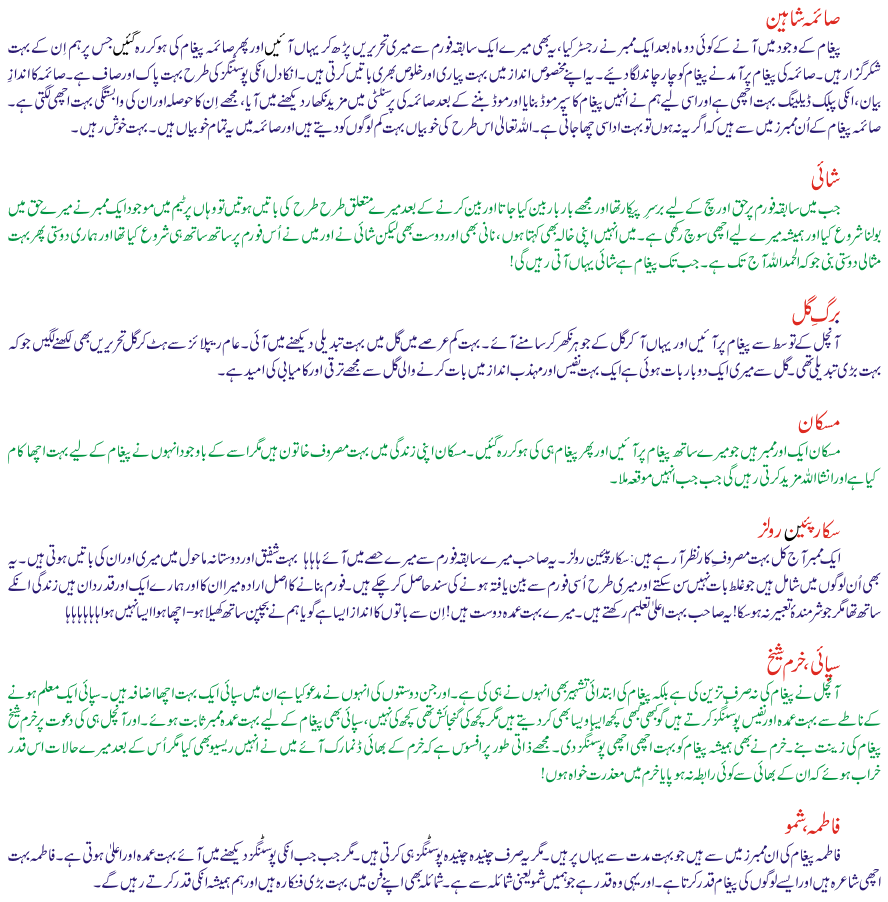 صائمہ شاہین
پیغام کے وجود میں آنے کے کوئی دو ماہ بعد ایک ممبر نے رجسٹر کیا، یہ بھی میرے ایک سابقہ فورم سے میری تحریریں پڑھ کر یہاں آئیں اور پھر صائمہ پیغام کی ہو کر رہ گئیں جس پر ہم اِن کے بہت
شکر گزار ہیں۔ صائمہ کی پیغام پر آمد نے پیغام کو چار چاند لگا دیئے۔ یہ اپنے مخصوص انداز میں بہت پیاری اور خلوص بھری باتیں کرتی ہیں۔ انکا دل انکی پوسٹنگز کی طرح بہت پاک اور صاف ہے۔ صائمہ کا اندازِ
بیان، انکی پبلک ڈیلینگ بہت اچھی ہے اور اسی لیے ہم نے انہیں پیغام کا سپر موڈ بنایا اور موڈ بننے کے بعد صائمہ کی پرسنلٹی میں مزید نکھار دیکھنے میں آیا، مجھے اِن کا حوصلہ اور ان کی وابستگی بہت اچھی لگتی ہے۔
صائمہ پیغام کے اُن ممبرز میں سے ہیں کہ اگر یہ نہ ہوں تو بہت اداسی چھا جاتی ہے۔ اللہ تعالیٰ اس طرح کی خوبیاں بہت کم لوگوں کو دیتے ہیں اور صائمہ میں یہ تمام خوبیاں ہیں۔ بہت خوش رہیں۔
شائی
جب میں سابقہ فورم پر حق اور سچ کے لیے برسرِ پیکار تھا اور مجھے بار بار بین کیا جاتا اور بین کرنے کے بعد میرے متعلق طرح طرح کی باتیں ہوتیں تو وہاں پر ٹیم میں موجود ایک ممبر نے میرے حق میں
بولنا شروع کیا اور ہمیشہ میرے لیے اچھی سوچ رکھی ہے۔ میں انہیں اپنی خالہ بھی کہتا ہوں، نانی بھی اور دوست بھی لیکن شائی نے اور میں نے اُس فورم پر ساتھ ساتھ ہی شروع کیا تھا اور ہماری دوستی پھر بہت
مثالی دوستی بنی جو کہ الحمداللہ آج تک ہے۔ جب تک پیغام ہے شائی یہاں آتی رہیں گی!
برگِ گل
آنچل کے توسط سے پیغام پر آئیں اور یہاں آ کر گل کے جوہر نکھر کر سامنے آئے۔ بہت کم عرصے میں گل میں بہت تبدیلی دیکھنے میں آئی۔ عام ریپلائز سے ہٹ کر گل تحریریں بھی لکھنے لگیں جو کہ
بہت بڑی تبدیلی تھی۔ گل سے میری ایک دو بار بات ہوئی ہے ایک بہت نفیس اور مہذب انداز میں بات کرنے والی گل سے مجھے ترقی اور کامیابی کی امید ہے۔
مسکان
مسکان ایک اور ممبر ہیں جو میرے ساتھ پیغام پر آئیں اور پھر پیغام ہی کی ہو کر رہ گئیں۔ مسکان اپنی زندگی میں بہت مصروف خاتون ہیں مگر اسے کے باوجود انہوں نے پیغام کے لیے بہت اچھا کام
کیا ہے اور انشا اللہ مزید کرتی رہیں گی جب جب انہیں موقعہ ملا۔
سکارپئین رولز
ایک ممبر آج کل بہت مصروفِ کار نظر آ رہے ہیں: سکارپئین رولز۔ یہ صاحب میرے سابقہ فورم سے میرے حصے میں آئے ہاہاہا بہت شفیق اور دوستانہ ماحول میں میری اور ان کی باتیں ہوتی ہیں۔ یہ
بھی اُن لوگوں میں شامل ہیں جو غلط بات نہیں سن سکتے اور میری طرح اُسی فورم سے بین یافتہ ہونے کی سند حاصل کر چکے ہیں۔ فورم بنانے کا اصل ارادہ میرا ان کا اور ہمارے ایک اور قدردان ہیں زندگی انکے
ساتھ تھا مگر جو شرمندۂ تعبیر نہ ہو سکا! یہ صاحب بہت اعلیٰ تعلیم رکھتے ہیں۔ میرے بہت عمدہ دوست ہیں! اِن سے باتوں کا انداز ایسا ہے گویا ہم نے بچپن ساتھ کھیلا ہو- اچھا ہوا ایسا نہیں ہوا ہاہاہاہاہاہا
سپائی، خرم شیخ
آنچل نے پیغام کی نہ صرف تزین کی ہے بلکہ پیغام کی ابتدائی تشہیر بھی انہوں نے ہی کی ہے۔ اور جن دوستوں کی انہوں نے مدعو کیا ہے ان میں سپائی ایک بہت اچھا اضافہ ہیں۔ سپائی ایک معلم ہونے
کے ناطے سے بہت عمدہ اور نفیس پوسٹنگز کرتے ہیں گو کبھی کبھی کچھ ایسا ویسا بھی کر دیتے ہیں مگر کچھ کی گنجائش تھی کچھ کی نہیں، سپائی بھی پیغام کے لیے بہت عمدہ ممبر ثابت ہوئے۔ اور آنچل ہی کی دعوت پر خرم شیخ
پیغام کی زینت بنے۔ خرم نے بھی ہمیشہ پیغام کو بہت اچھی اچھی پوسٹنگز دی۔ مجھے ذاتی طور پر افسوس ہے کہ خرم کے بھائی ڈنمارک آئے میں نے انہیں ریسیو بھی کیا مگر اُس کے بعد میرے حالات اس قدر
خراب ہوئے کہ ان کے بھائی سے کوئی رابطہ نہ ہو پایا خرم میں معذرت خواہ ہوں!
فاطمہ، شمو
فاطمہ پیغام کی ان ممبرز میں سے ہیں جو بہت مدت سے یہاں پر ہیں۔ مگر یہ صرف چنیدہ چنیدہ پوسٹنگز ہی کرتی ہیں۔ مگر جب جب انکی پوسٹنگز دیکھنے میں آئے بہت عمدہ اور اعلیٰ ہوتی ہے۔ فاطمہ بہت
اچھی شاعرہ ہیں اور ایسے لوگوں کی پیغام قدر کرتا ہے۔ اور یہی وہ قدر ہے جو ہمیں شمو یعنی شمائلہ سے ہے۔ شمائلہ بھی اپنے فن میں بہت بڑی فنکارہ ہیں اور ہم ہمیشہ انکی قدر کرتے رہیں گے۔